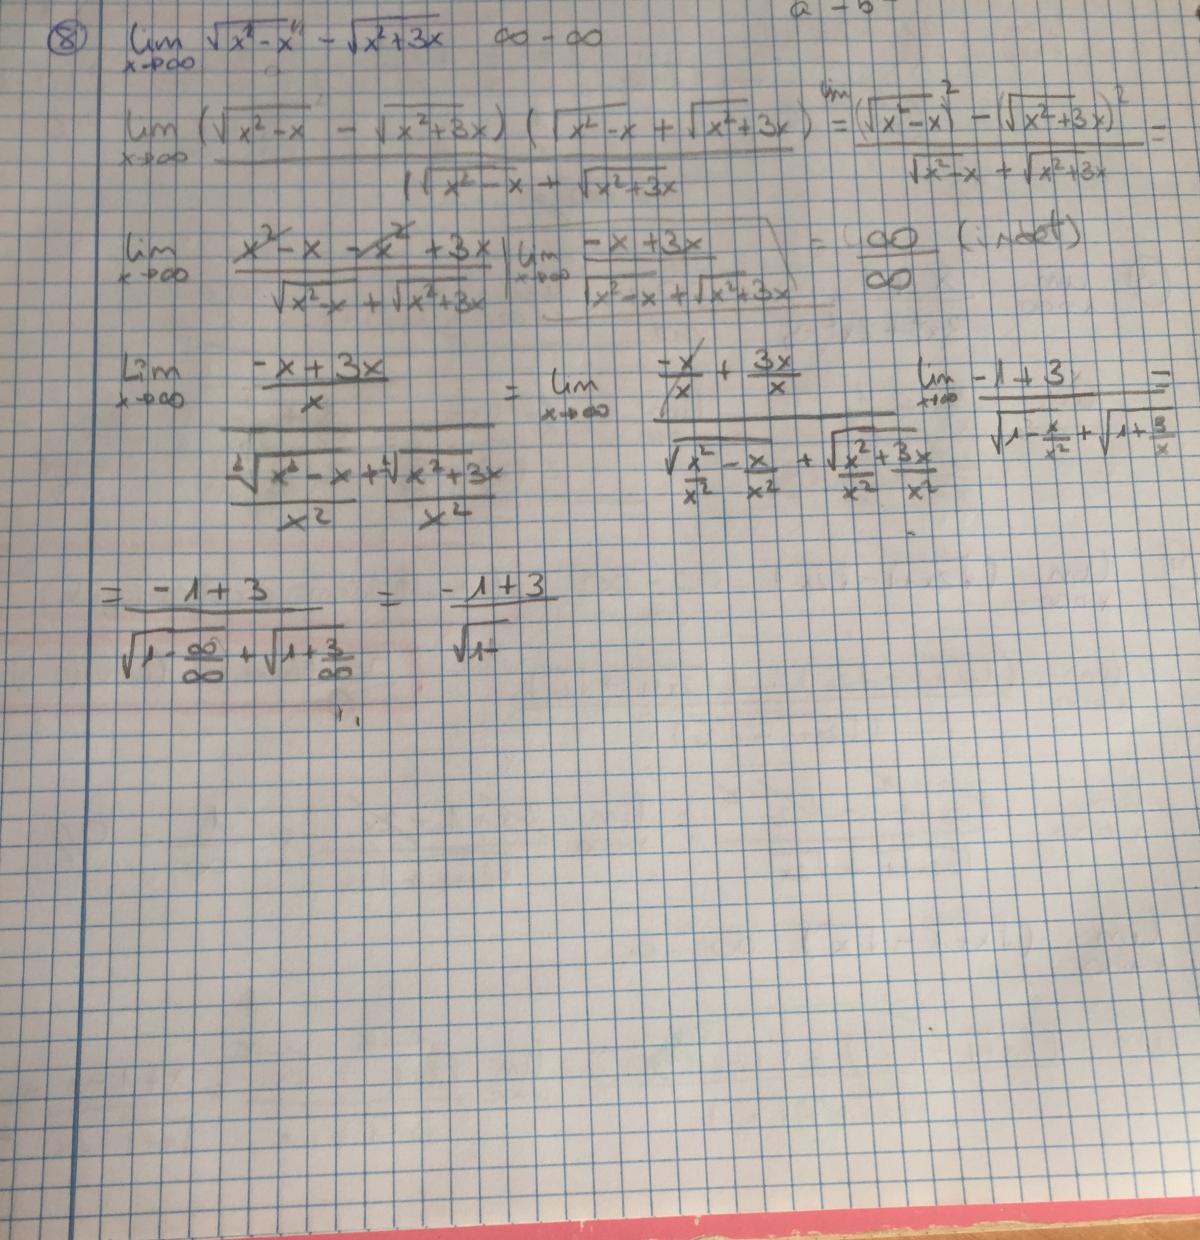 a - b
⑧ lim x→∞ √(x²-x) - √(x²+3x) ∞ - ∞
lim x→∞ (√(x²-x) - √(x²+3x)) (√(x²-x) + √(x²+3x)) / (√(x²-x) + √(x²+3x)) = lim (√(x²-x))² - (√(x²+3x))² / (√(x²-x) + √(x²+3x)) =
lim x→∞ (x²-x - x² + 3x) / (√(x²-x) + √(x²+3x)) | lim x→∞ (-x + 3x) / (√(x²-x) + √(x²+3x)) = ∞/∞ (indet)
lim x→∞ ((-x + 3x)/x) / (²√((x²-x)/x²) + ²√((x²+3x)/x²)) = lim x→∞ (-x/x + 3x/x) / (√(x²/x² - x/x²) + √(x²/x² + 3x/x²)) lim x→∞ (-1+3) / (√(1 - x/x²) + √(1 + 3/x)) =
= (-1+3) / (√(1 - ∞/∞) + √(1 + 3/∞)) = (-1+3) / √(1-